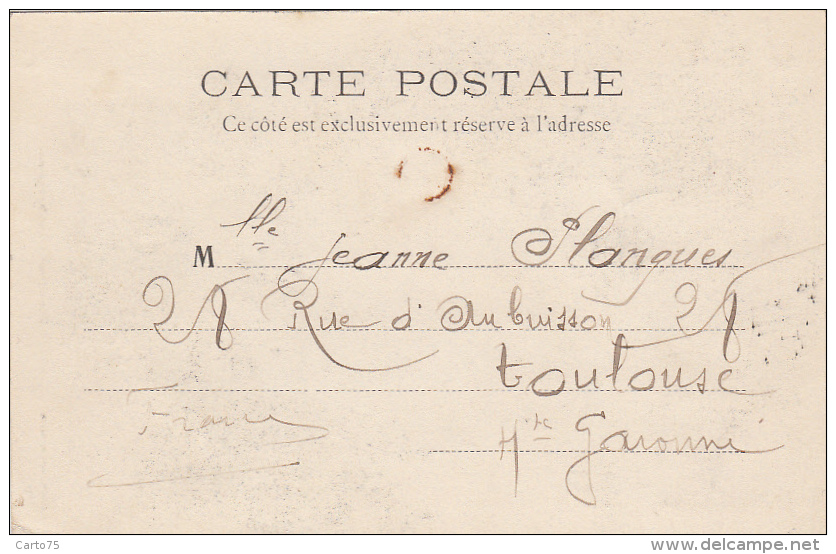 CARTE POSTALE
Ce côté est exclusivement réserve à l'adresse
M lle Jeanne Plangues
28 Rue d'Aubuisson 28
toulouse
France
Hte Garonne
Carto75
www.delcampe.net